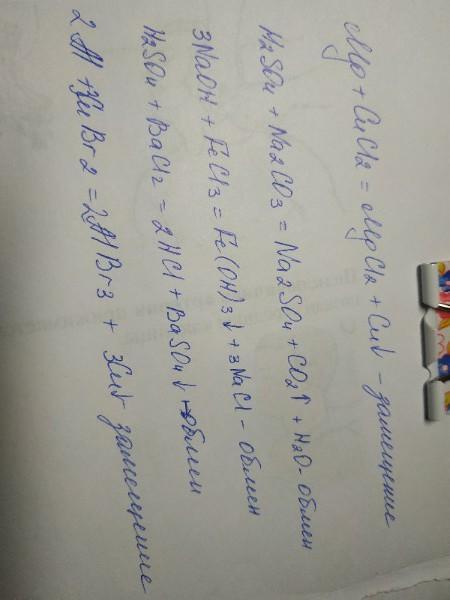 Mg + CuCl2 = MgCl2 + Cu↓ - замещение
H2SO4 + Na2CO3 = Na2SO4 + CO2↑ + H2O - обмен
3NaOH + FeCl3 = Fe(OH)3↓ + 3NaCl - обмен
H2SO4 + BaCl2 = 2HCl + BaSO4↓ - обмен
2Al + 3CuBr2 = 2AlBr3 + 3Cu↓ замещение